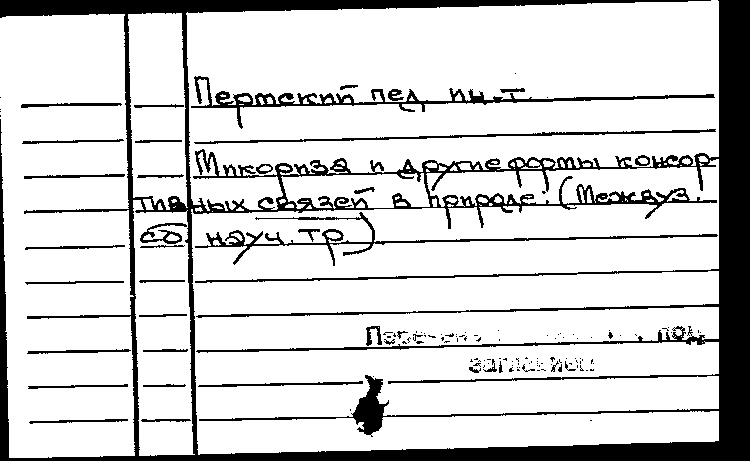 Пермский пед. ин-т.
Микориза и другие формы консор-
тивных связей в природе: (Межвуз.
сб. науч. тр.)
под
заглавием